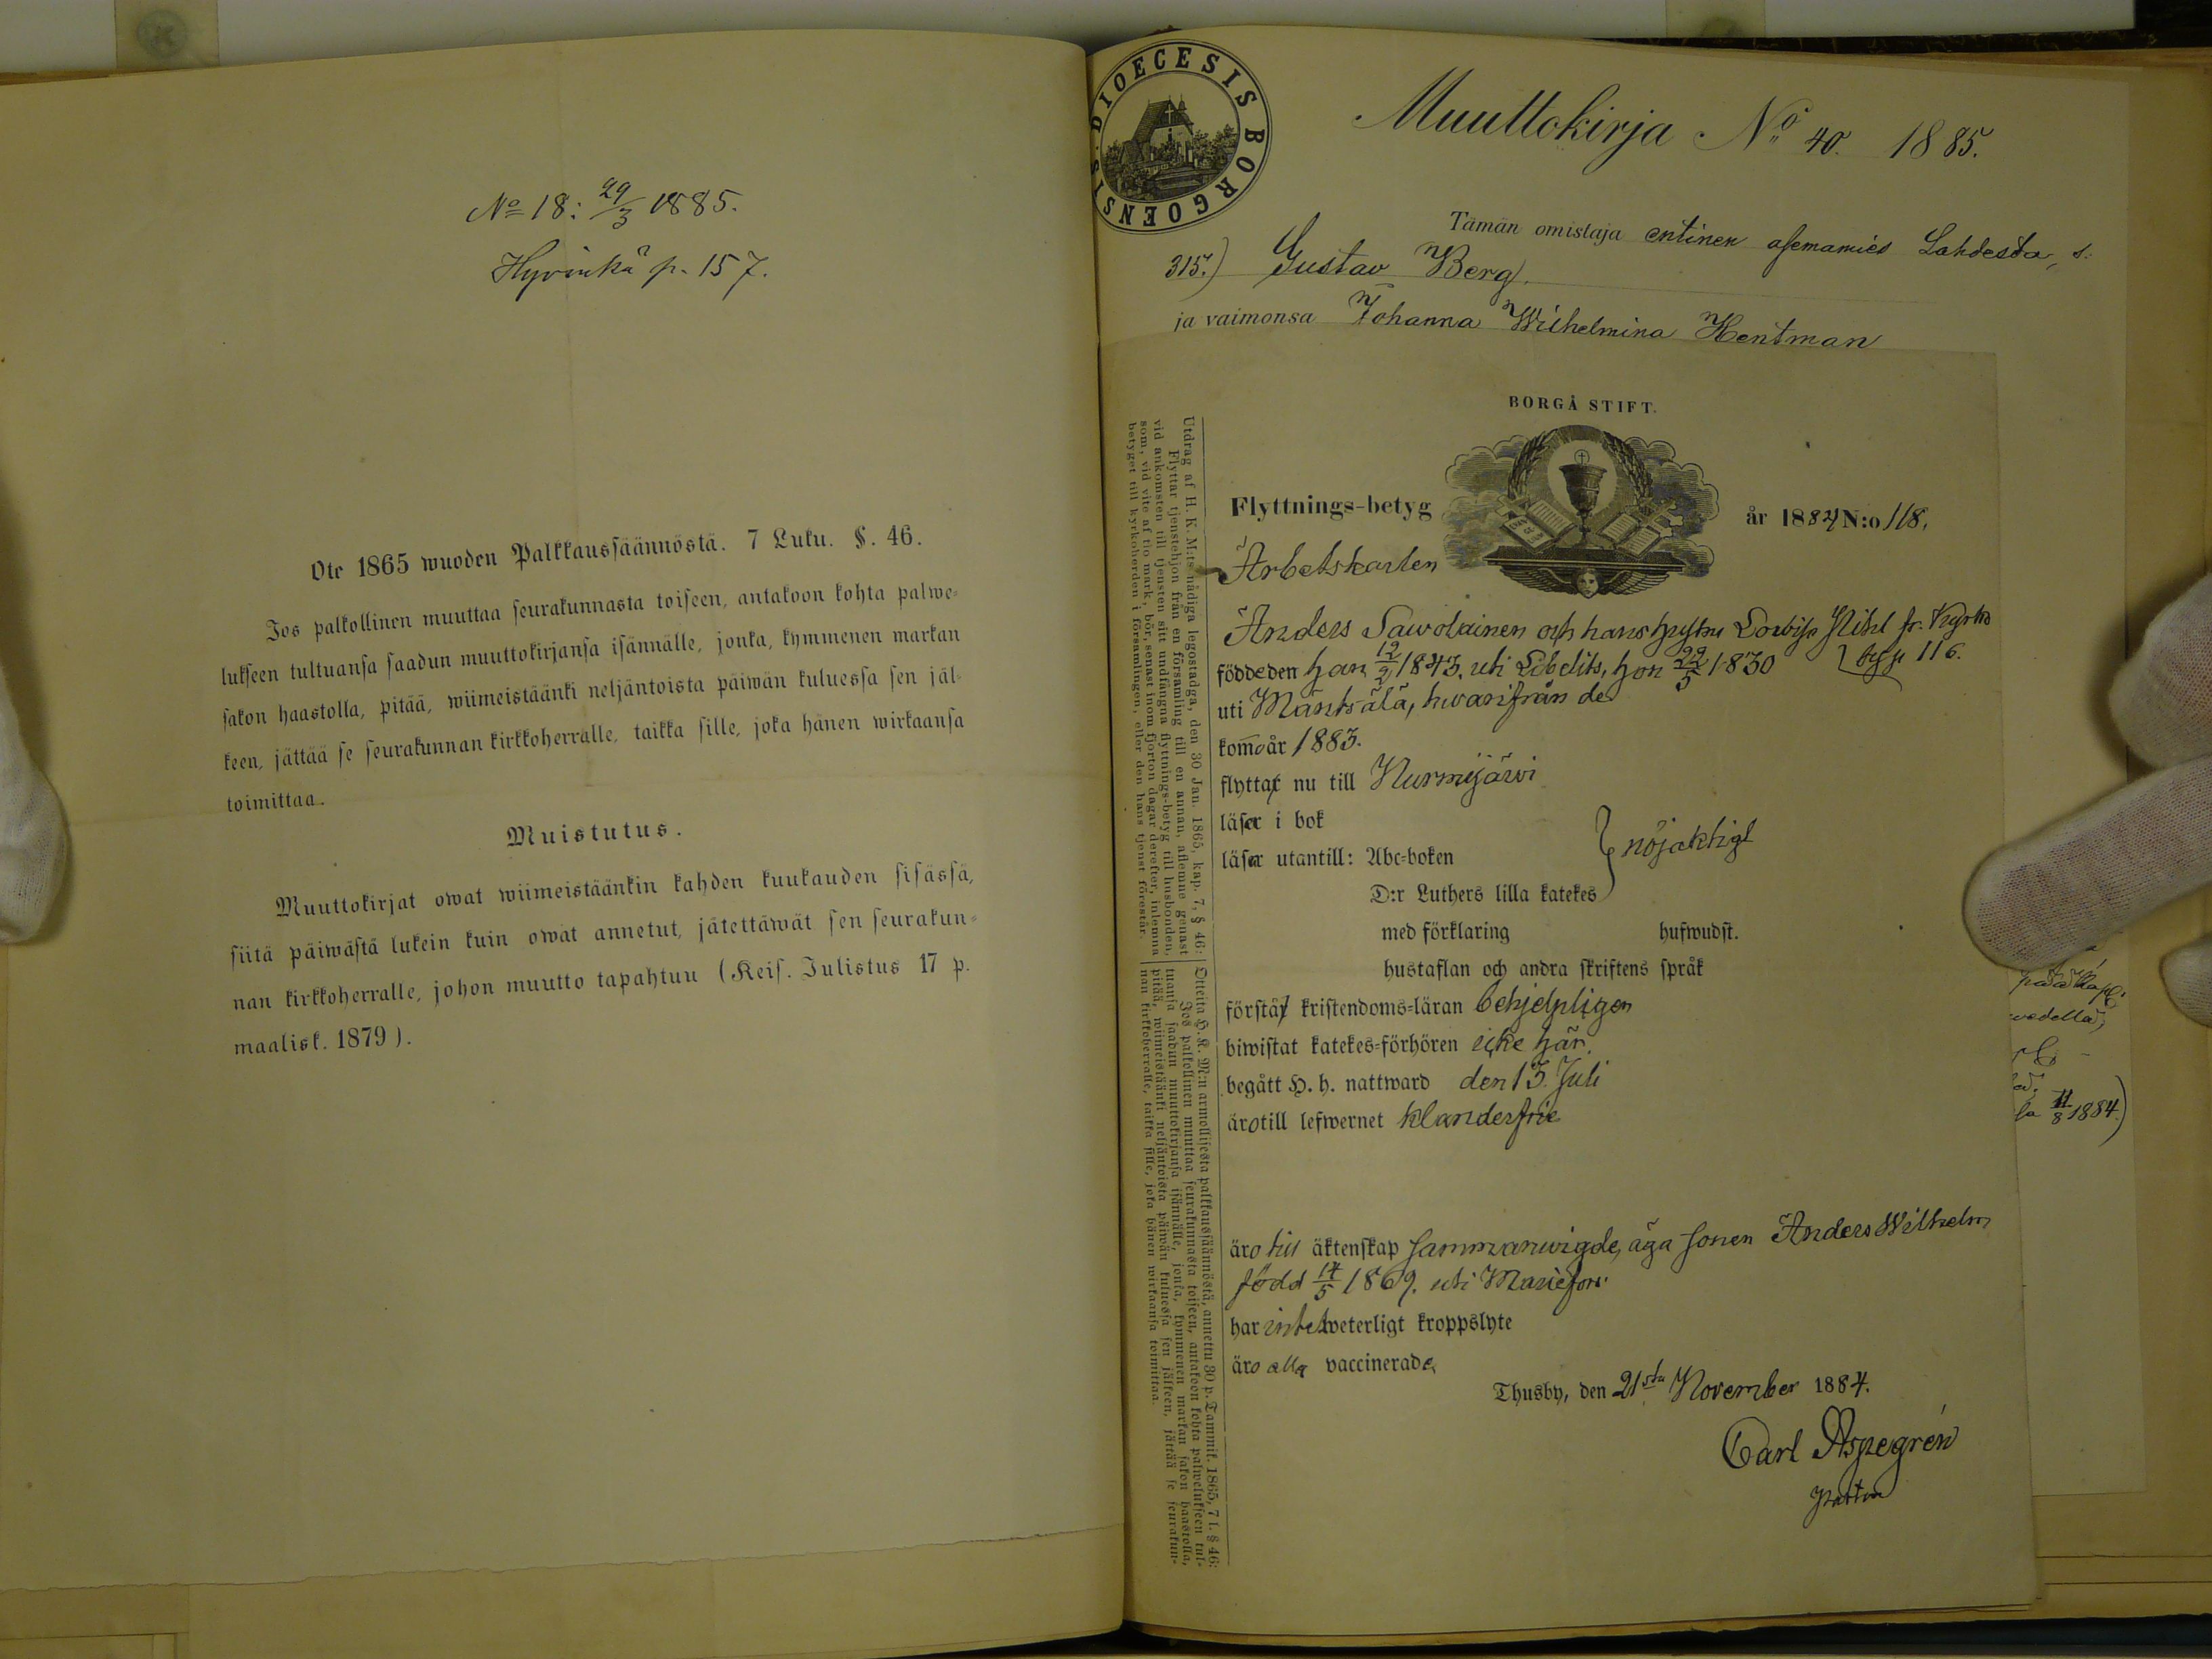 No 18: 29/3 1885.
Hyvinkä p. 157.
Ote 1865 wuoden Palkkaussäännöstä. 7 Luku. §. 46.
Jos palkollinen muuttaa seurakunnasta toiseen, antakoon kohta palwe-
lukseen tultuansa saadun muuttokirjansa isännälle, jonka, kymmenen markan
sakon haastolla, pitää, wiimeistäänki neljäntoista päiwän kuluessa sen jäl-
keen, jättää se seurakunnan kirkkoherralle, taikka sille, joka hänen wirkaansa
toimittaa.
Muistutus.
Muuttokirjat owat wiimeistäänkin kahden kuukauden sisässä,
siitä päiwästä lukein kuin owat annetut, jätettäwät sen seurakun-
nan kirkkoherralle, johon muutto tapahtuu (Keis. Julistus 17 p.
maalisk. 1879).
DIOECESIS BORGOENSIS.
Muuttokirja No 40. 1885.
Tämän omistaja entinen asemamies Lahdesta, s.
315.) Gustav Berg.
ja vaimonsa Johanna Wilhelmina Hentman
BORGÅ STIFT.
Flyttnings-betyg år 1884 N:o 118,
Arbetskarlen
Anders Sawolainen och hans hustru Lovisa fr. Kyrko
födde den han 12/2 1843. uti Libelits, hon 22/5 1830 by p 116.
uti Mäntsälä, hwarifrån de
kommo år 1883.
flyttar nu till Nurmijärwi
läser i bok
läser utantill: Abc-boken } nöjaktigt
D:r Luthers lilla katekes
med förklaring hufwudst.
hustaflan och andra skriftens språk
förstår kristendoms-läran behjelpligen
biwistat katekes-förhören icke här.
begått H. h. nattward den 13. Juli
äro till lefwernet klanderfrie
äro till äktenskap sammanwigde, äga sonen Anders Wilhelm
född 14/5 1869. uti Mariefors
har intet weterligt kroppslyte
äro alla vaccinerade
Thusby, den 21sta November 1884.
Carl Aspegrén
Pastor
Utdrag af H. K. M:ts nådiga legostadga, den 30 Jan. 1865, kap. 7, § 46:
Flyttar tjenstehjon från en församling till en annan, aflemne genast
vid ankomsten till tjensten sitt undfångna flyttnings-betyg till husbonden,
som, vid vite af tio mark, bör, senast inom fjorton dagar derefter, inlemna
betyget till kyrkoherden i församlingen, eller den hans tjenst förestår.
Otteita H. K. M:n armollisesta palkkaussäännöstä, annettu 30 p. Tammik. 1865, 7 l. § 46:
Jos palkollinen muuttaa seurakunnasta toiseen, antakoon kohta palwelukseen tul-
tuansa saadun muuttokirjansa isännälle, jonka, kymmenen markan sakon haastolla,
pitää, wiimeistäänki neljäntoista päiwän kuluessa sen jälkeen, jättää se seurakun-
nan kirkkoherralle, taikka sille, joka hänen wirkaansa toimittaa.
11/8 1884.)